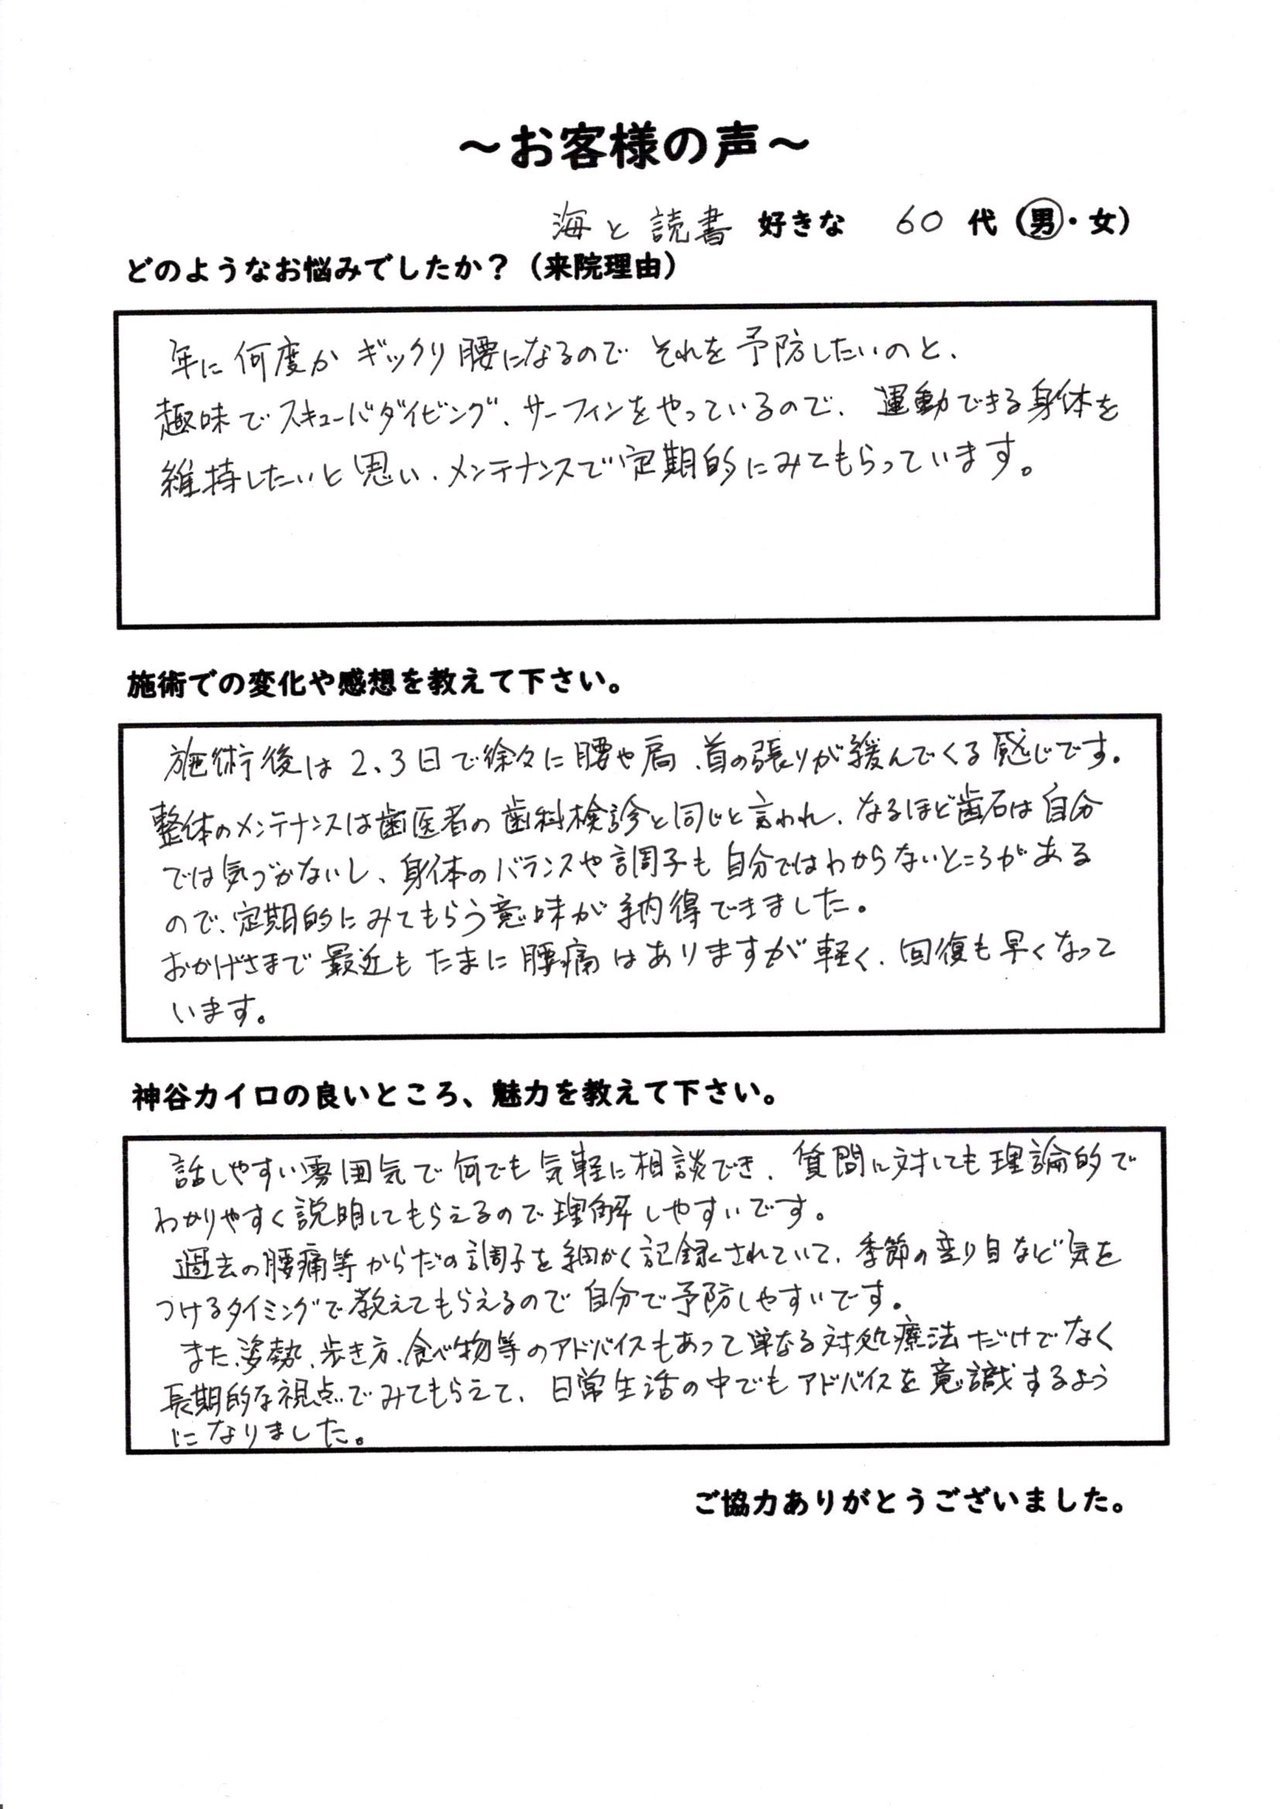 ～お客様の声～
海と読書 好きな 60 代（男・女）
どのようなお悩みでしたか？（来院理由）
年に何度かギックリ腰になるので それを予防したいのと、
趣味でスキューバダイビング、サーフィンをやっているので、運動できる身体を
維持したいと思い、メンテナンスで定期的にみてもらっています。
施術での変化や感想を教えて下さい。
施術後は2、3日で徐々に腰や肩、首の張りが緩んでくる感じです。
整体のメンテナンスは歯医者の歯科検診と同じと言われ、なるほど歯石は自分
では気づかないし、身体のバランスや調子も自分ではわからないところがある
ので、定期的にみてもらう意味が納得できました。
おかげさまで最近もたまに腰痛はありますが軽く、回復も早くなって
います。
神谷カイロの良いところ、魅力を教えて下さい。
話しやすい雰囲気で何でも気軽に相談でき、質問に対しても理論的で
わかりやすく説明してもらえるので理解しやすいです。
過去の腰痛等からだの調子を細かく記録されていて、季節の変り目など気を
つけるタイミングで教えてもらえるので自分で予防しやすいです。
また、姿勢、歩き方、食べ物等のアドバイスもあって単なる対処療法だけでなく
長期的な視点でみてもらえて、日常生活の中でもアドバイスを意識するよう
になりました。
ご協力ありがとうございました。